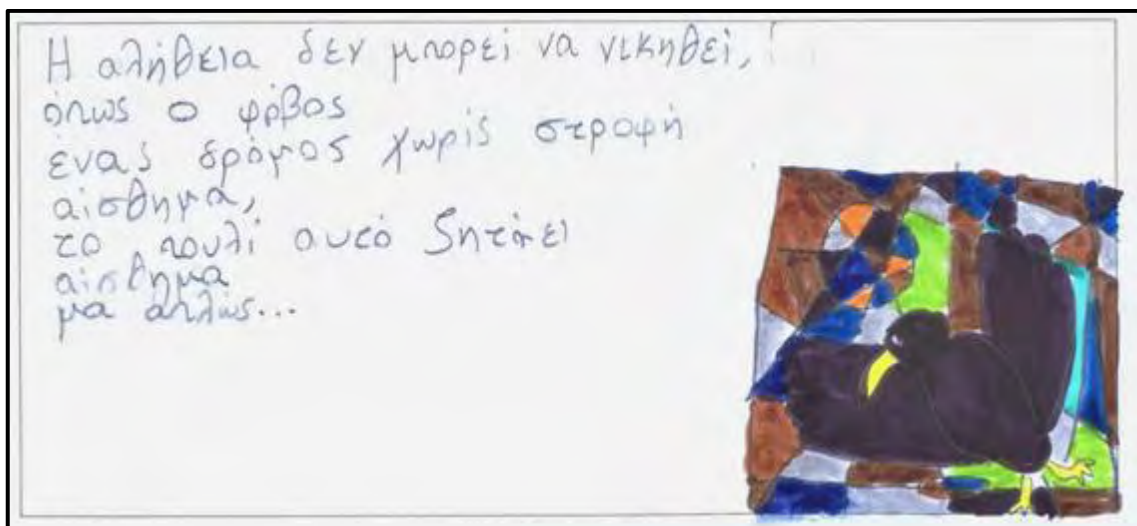 Η αλήθεια δεν μπορεί να νικηθεί,
όπως ο φόβος
ένας δρόμος χωρίς στροφή
αίσθημα,
το πουλί αυτό ζητάει
αίσθημα
μα απλώς...